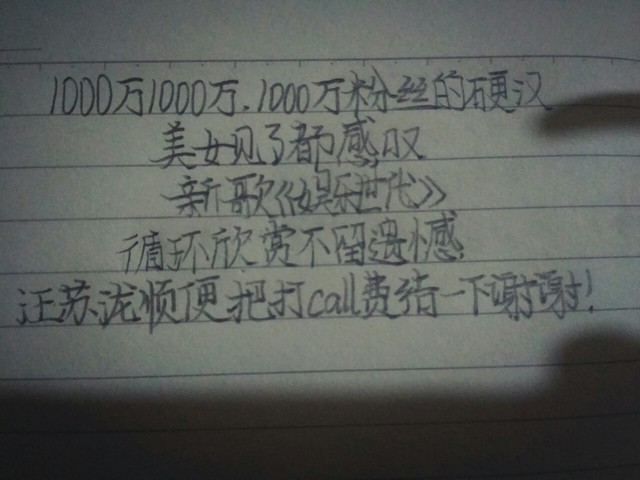 1000万1000万.1000万粉丝的硬汉
美女见了都感叹
新歌《娱乐世代》
循环欣赏不留遗憾
汪苏泷顺便把打call费结一下谢谢!